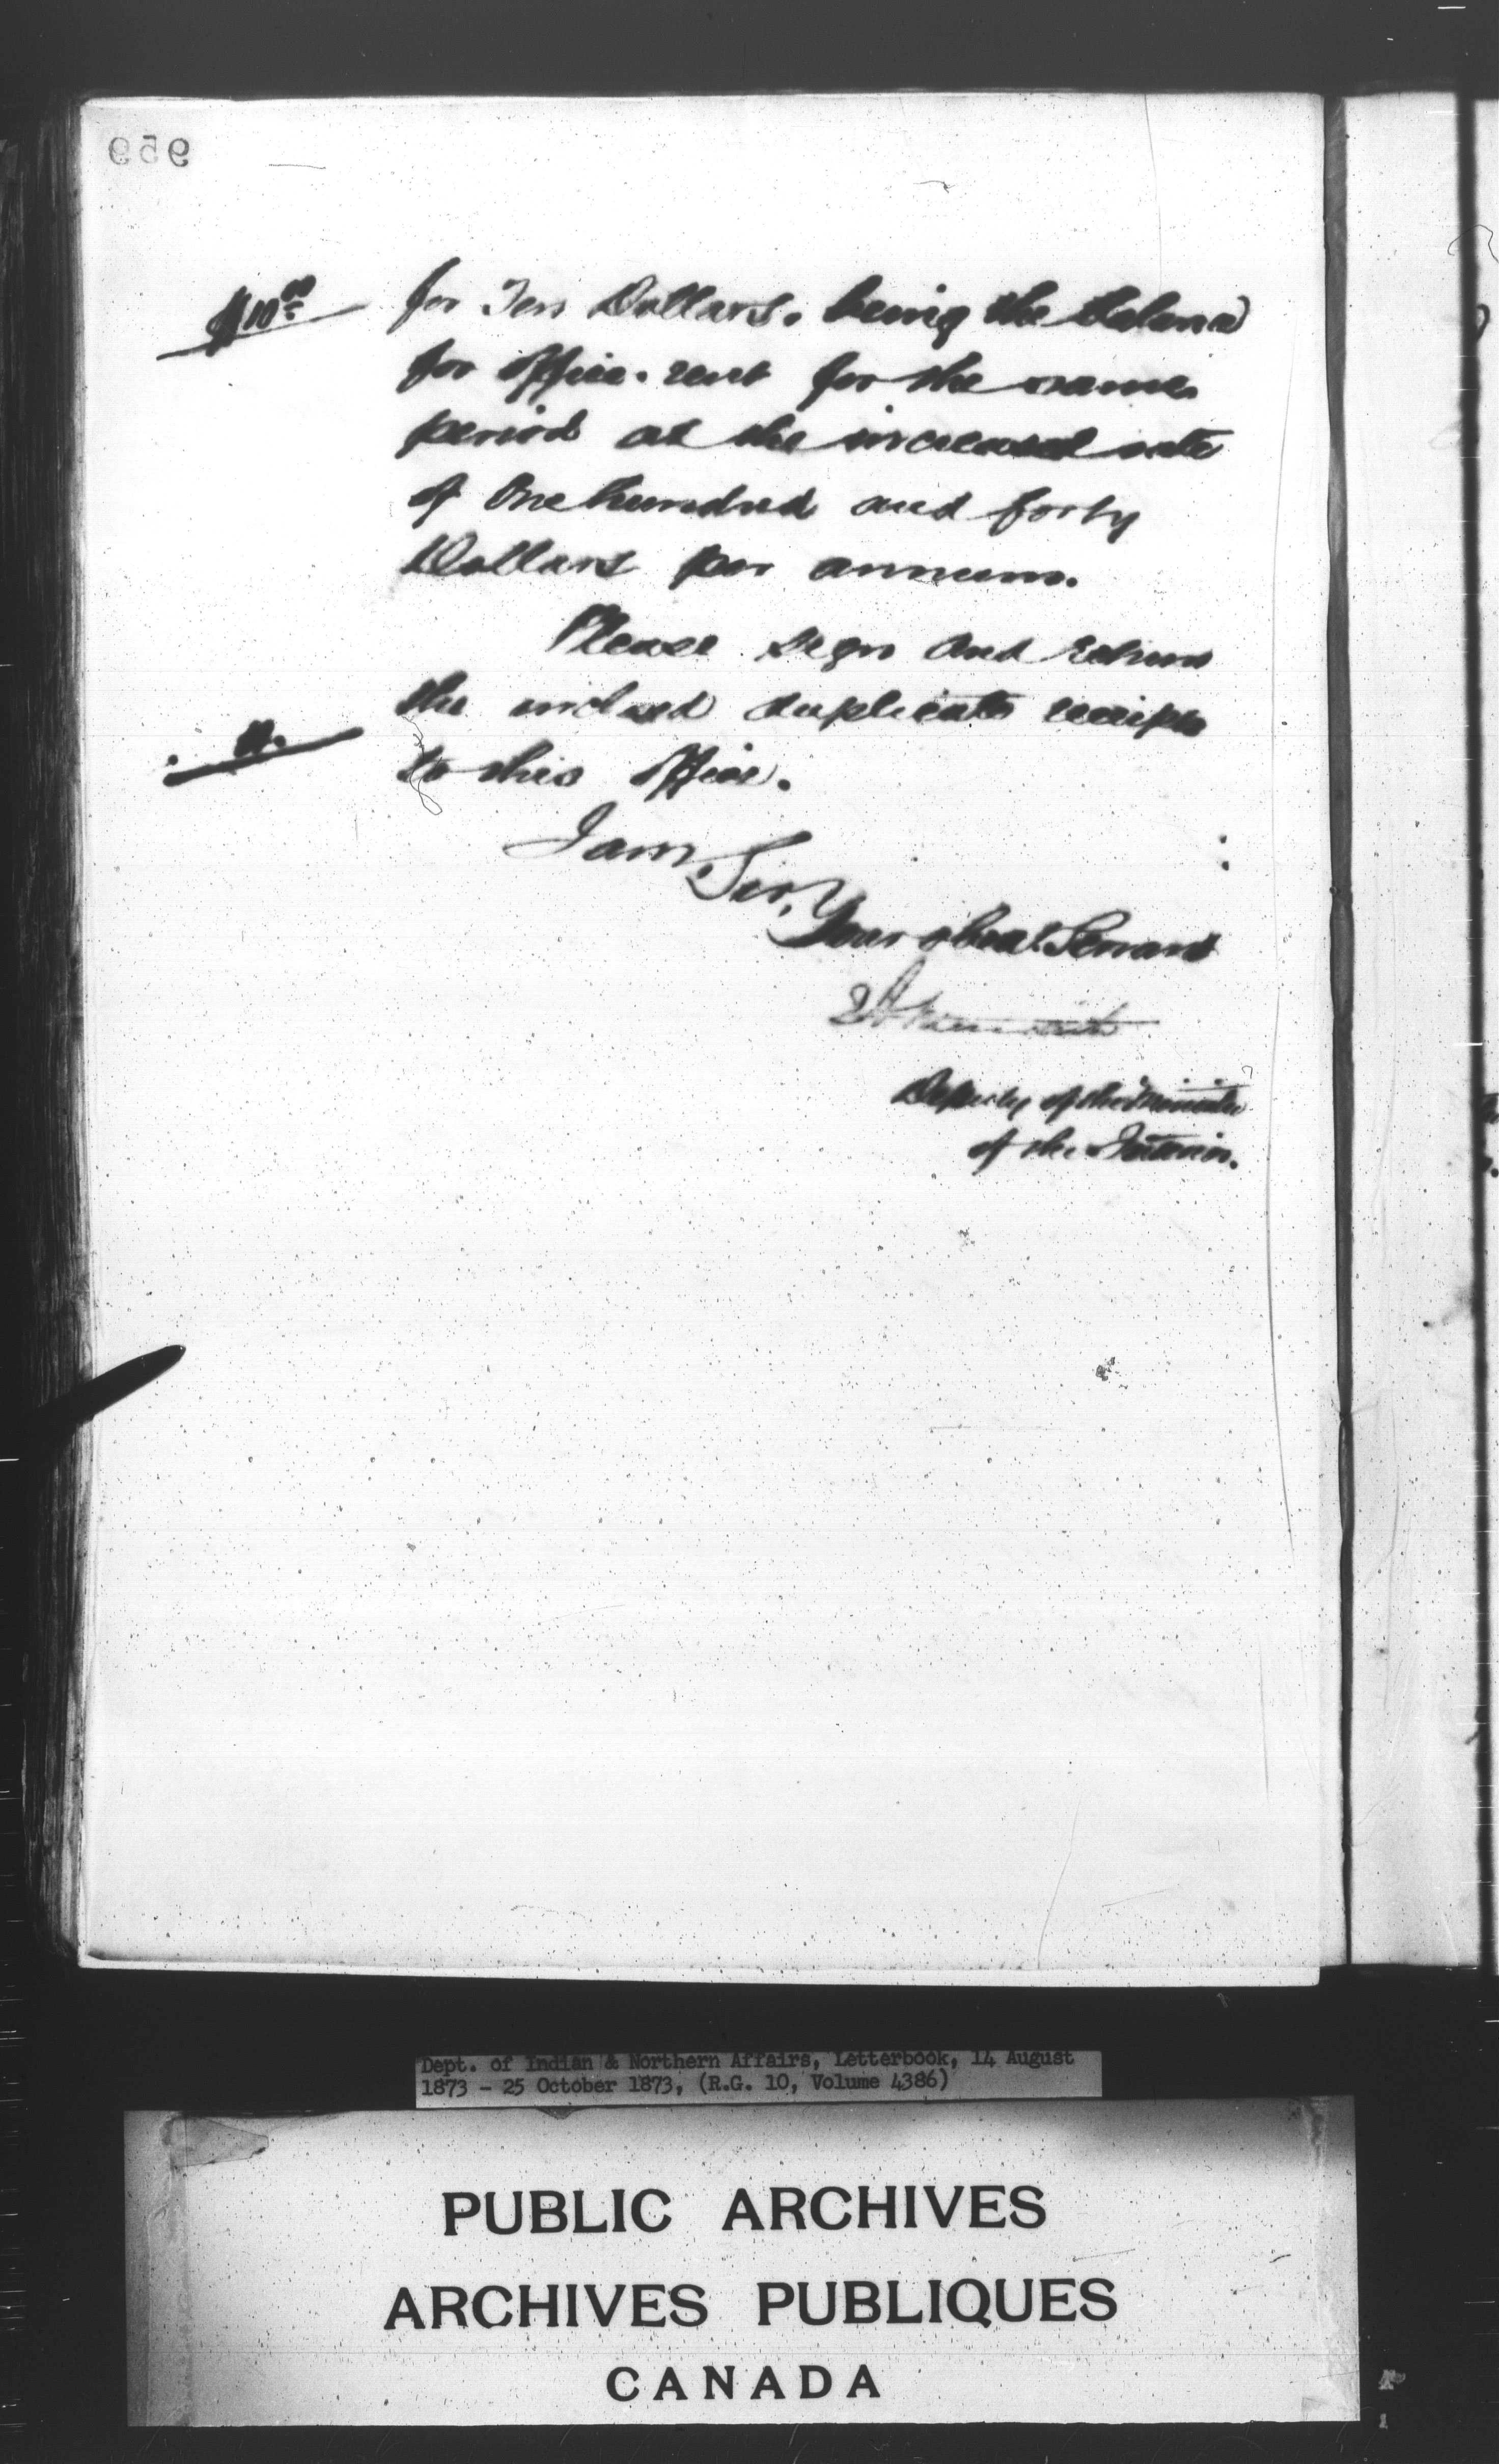 959
$10.00 for Ten Dollars. being the balance
for office. rent for the same
period at the increased rate
of One hundred and forty
Dollars per annum.
Please sign and return
the inclosed duplicate receipts
to this office.
I am,
Sir,
Your obedt. Servant
Deputy of the Minister
of the Interior.
Dept. of Indian & Northern Affairs, Letterbook, 14 August
1873 - 25 October 1873, (R.G. 10, Volume 4386)
PUBLIC ARCHIVES
ARCHIVES PUBLIQUES
CANADA